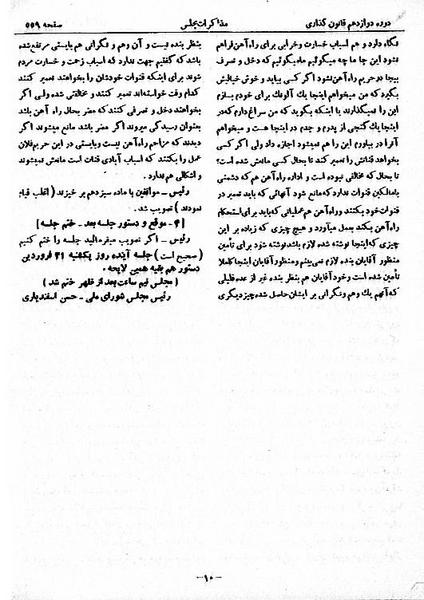 دوره دوازدهم قانون گذاری
مذاکرات مجلس
صفحه ۵۵۹
نگاه دارد و هم اسباب خسارت وخرابی برای راه آهن فراهم
نشود این جا ما چه میگوئیم که دخل و تصرفی
بیجا در حریم راه آهن نشود اگر کسی بیاید و خوش خیالیش
بگیرد که من میخواهم اینجا یك آلونك برای خودم بسازم
این را نمیگذارند یا اینکه بگوید که من سراغ دارم که در
اینجا یك گنجی از پدرم و جدم در اینجا هست و میخواهم
آنرا در بیاورم این را هم نمیشود اجازه داد ولی اگر کسی
بخواهد قناتش را تعمیر کند تا بحال کسی مانعش شده است؟
تا بحال که مخالفی نبوده است و اداره راه آهن هم که دشمنی
با مالکین قنوات ندارد که مانع شود آنهائی که باید تعمیر در
قنوات خود بکنند و راه آهن هم عملیاتی که باید برای استحکام
راه آهن بکند بعمل میآورد و هیچ چیزی که زیاده بر این
چیزی که اینجا نوشته شده لازم باشد نوشته شود برای تأمین
منظور آقایان بنده لازم نمی بینم و منظور آقایان اینجا کاملا
تأمین شده است و خود آقایان هم بنظر بنده غیر از عده قلیلی
که آنهم یك وهم و نگرانی بر ایشان حاصل شده چیز دیگری
بنظر بنده نیست و آن وهم و نگرانی هم بایستی مرتفع شده
باشد که گفتیم جهت ندارد که اسباب زحمت و خسارت
شوند برای اینکه قنوات خودشان را بخواهند تعمیر کنند
کدام وقت خواسته اند تعمیر کنند و مخالفتی شده ولی اگر
بخواهند دخل و تصرفی کنند که مضر بحال راه آهن باشد
بعنوان رسیدگی میروند اگر مضر باشد مانع میشوند اگر
دیدند که مزاحم راه آهن نیست و بایستی در این حریم فلان
عمل را بکنند که اسباب آبادی قنات است مانع نمیشوند
و اشکالی هم ندارد.
رئیس - موافقین با ماده سیزدهم بر خیزند (اغلب قیام
نمودند) تصویب شد.
[۴- موقع و دستور جلسه بعد - ختم جلسه]
رئیس - اگر تصویب میفرمائید جلسه را ختم کنیم
(صحیح است) جلسه آینده روز یکشنبه ۲۱ فروردین
دستور هم بقیه همین لایحه.
(مجلس نیم ساعت بعد از ظهر ختم شد)
رئیس مجلس شورای ملی - حسن اسفندیاری
-۱۰-